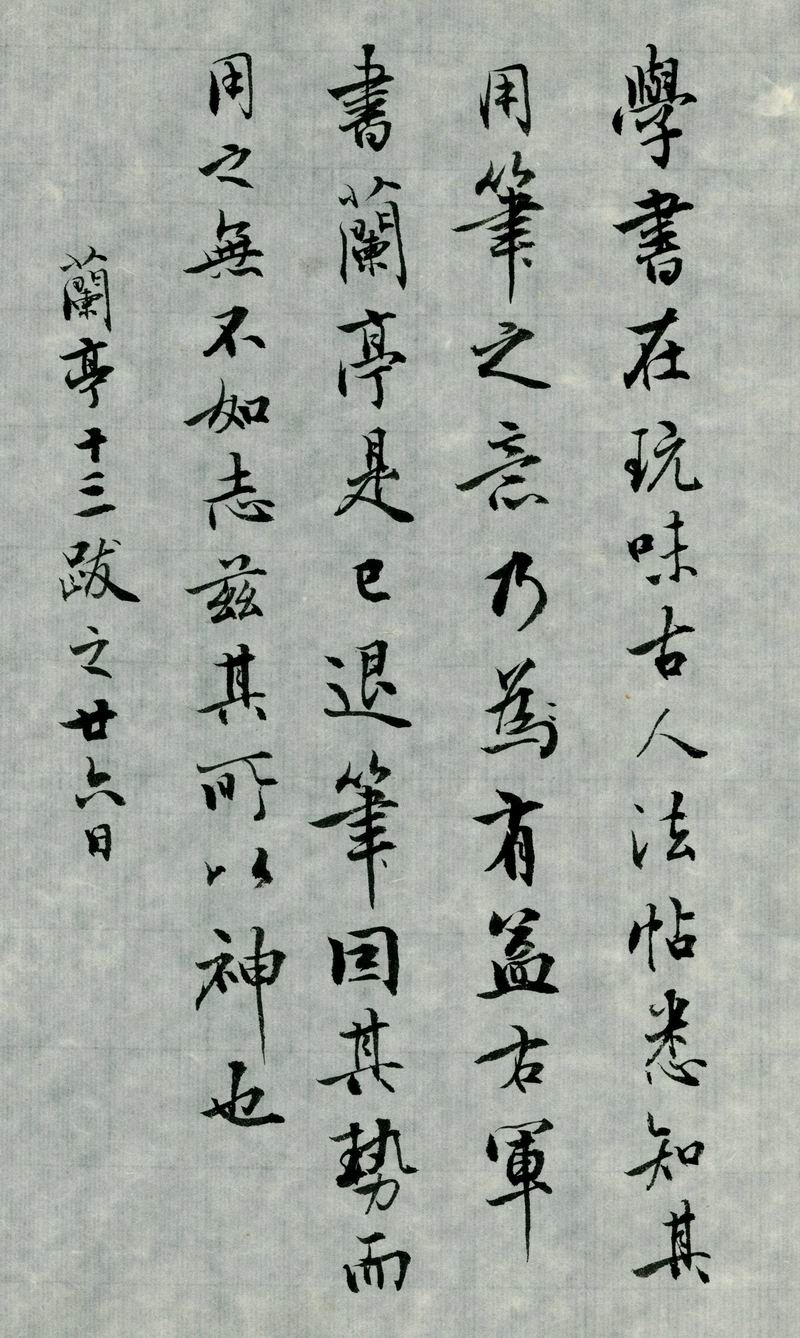 學書在玩味古人法帖悉知其
用筆之意乃為有益右軍
書蘭亭是已退筆因其勢而
用之無不如志茲其所以神也
蘭亭十三跋之廿六日